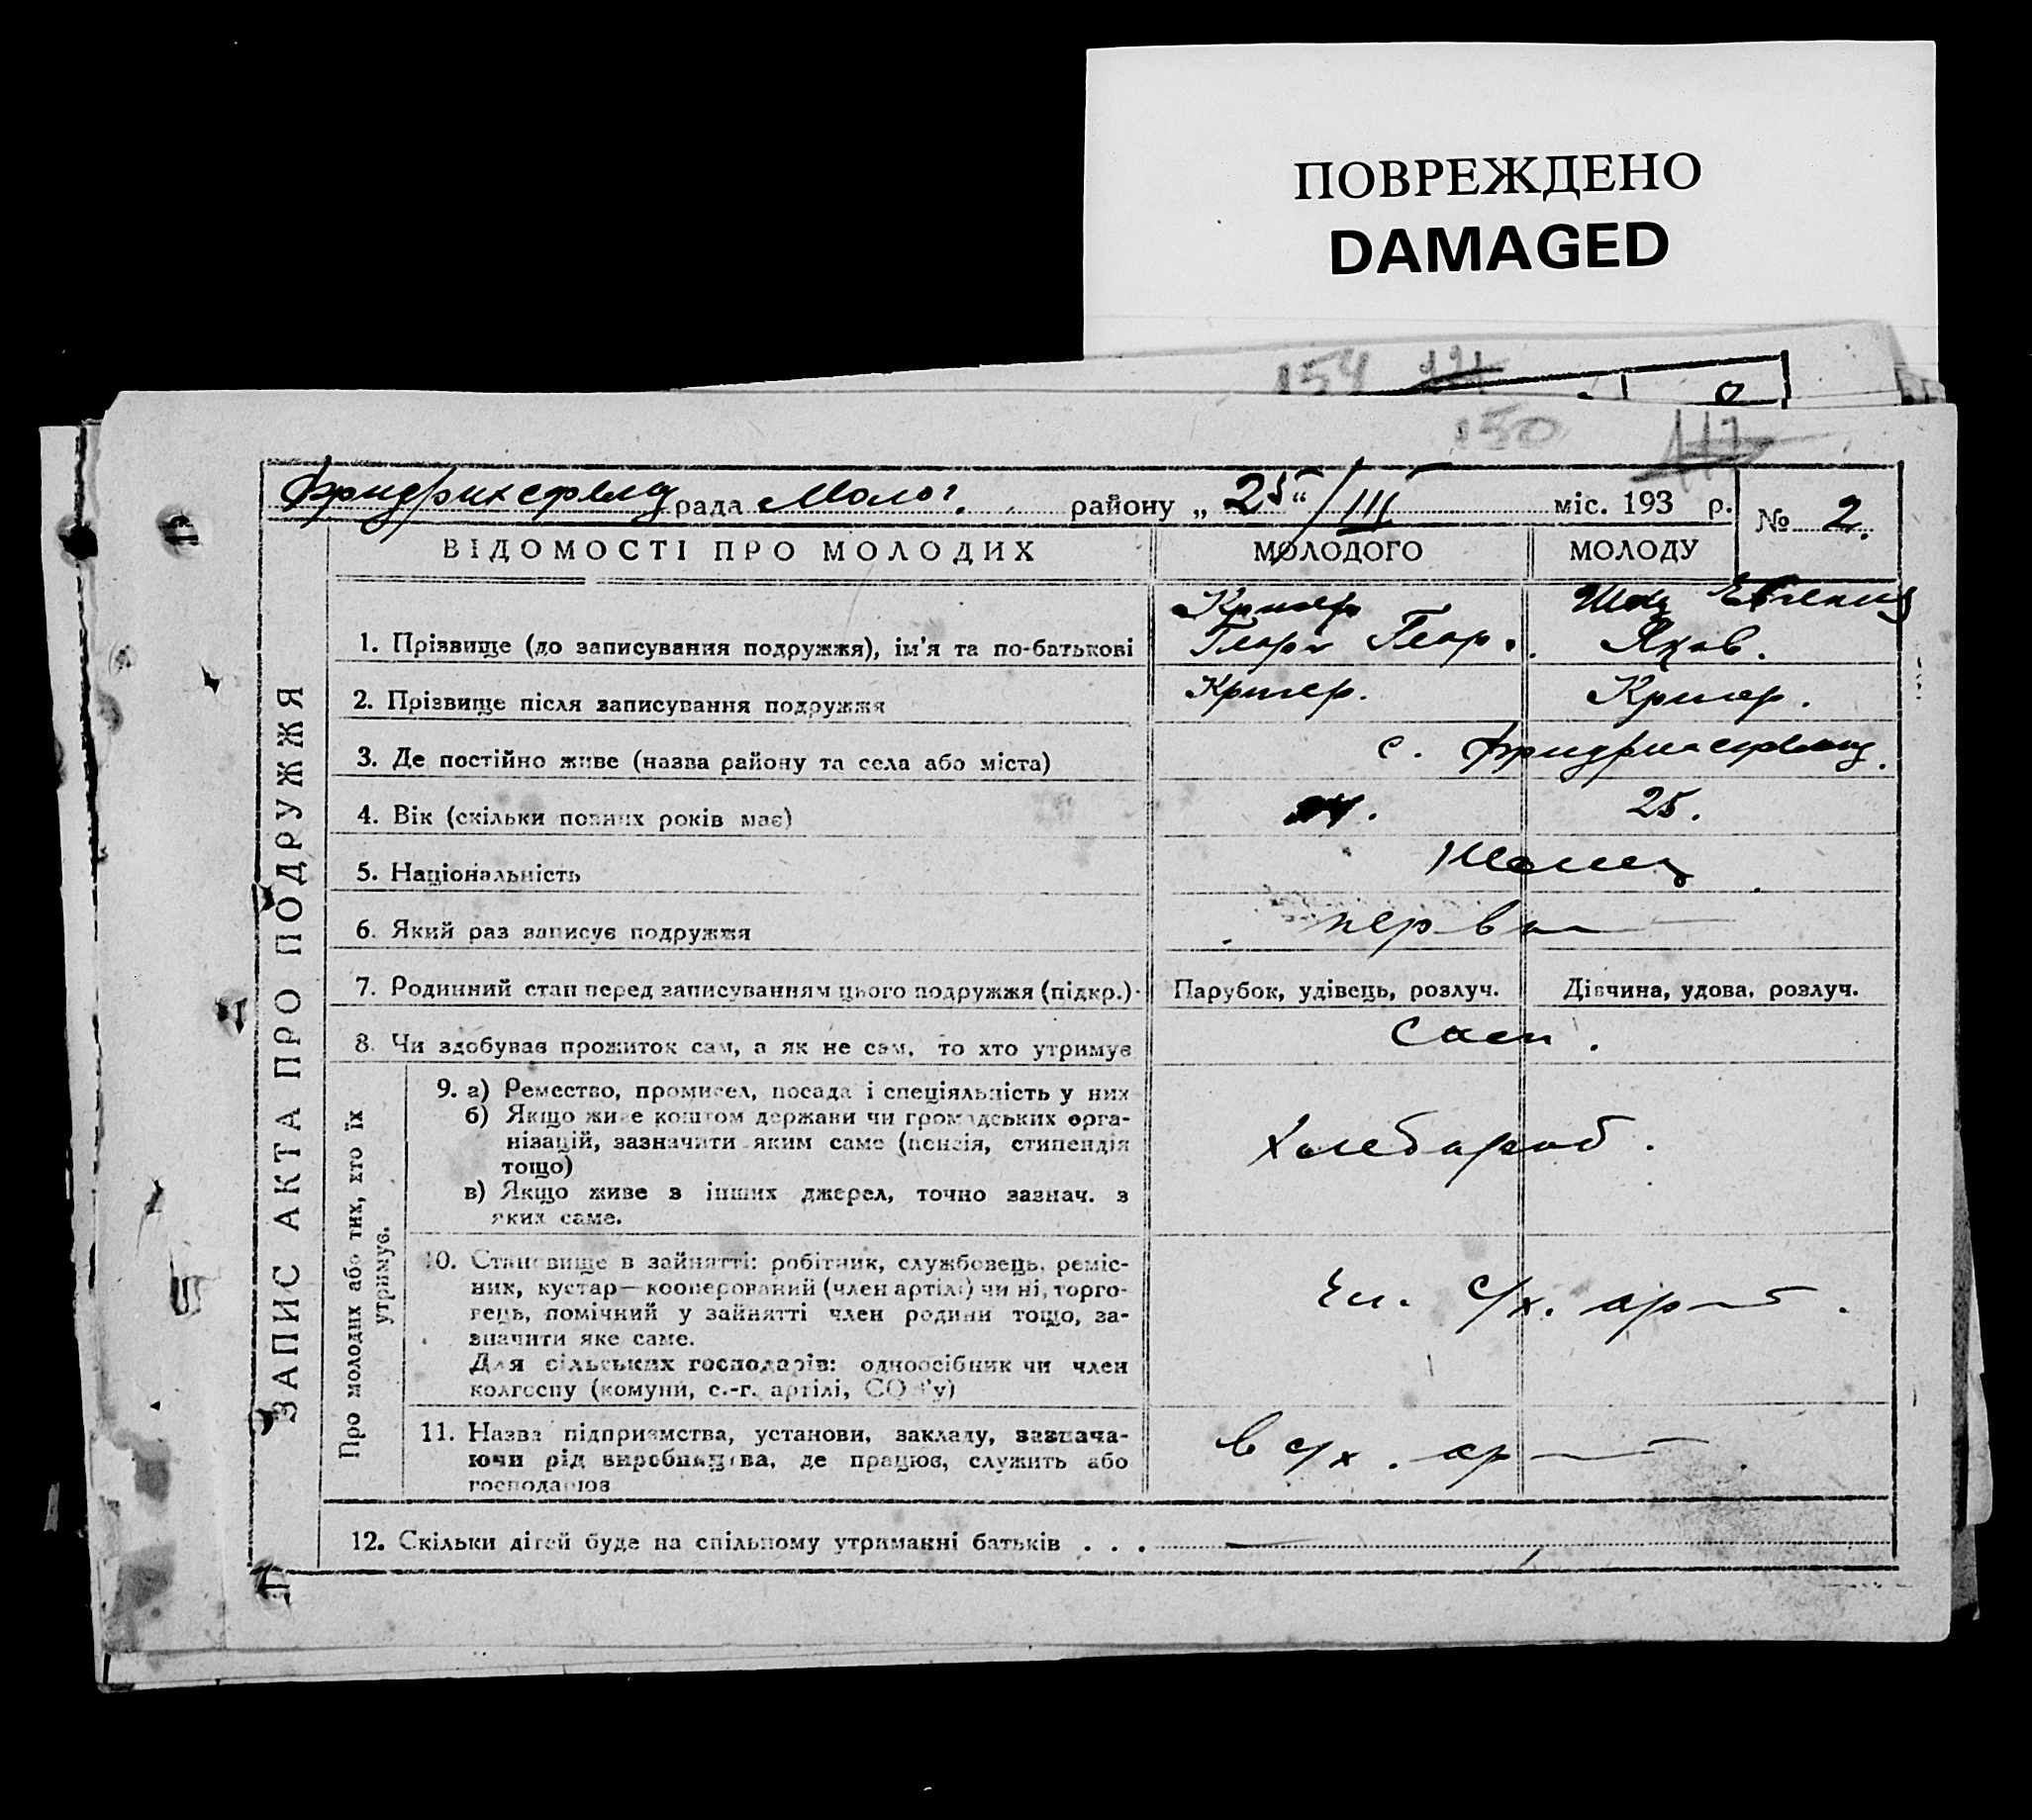 ПОВРЕЖДЕНО
DAMAGED
154
150 117
Фридрихсфельд рада Молоч. району „ 25 “ / III міс. 193 р. № 2.
ВІДОМОСТІ ПРО МОЛОДИХ МОЛОДОГО МОЛОДУ
ЗАПИС АКТА ПРО ПОДРУЖЖЯ
Кригер Евгения
1. Прізвище (до записування подружжя), ім'я та по-батькові Георг Геор. Яков.
2. Прізвище після записування подружжя Кригер. Кригер.
3. Де постійно живе (назва району та села або міста) с. Фридрихсфельд.
4. Вік (скільки повних років має) 25.
5. Національність Немец
6. Який раз записує подружжя перв
7. Родинний стан перед записуванням цього подружжя (підкр.) Парубок, удівець, розлуч. Дівчина, удова, розлуч.
8. Чи здобував прожиток сам, а як не сам, то хто утримує сам.
Про молодих або тих, хто їх
утримує.
9. а) Ремество, промисел, посада і спеціяльність у них
б) Якщо живе коштом держави чи громадських орга-
нізацій, зазначити яким саме (пенсія, стипендія
тощо)
хлебороб.
в) Якщо живе з інших джерел, точно зазнач. з
яких саме.
10. Становище в зайнятті: робітник, службовець, реміс-
ник, кустар—кооперований (член артілі) чи ні, торго-
вець, помічний у зайнятті член родини тощо, за-
значити яке саме.
Чл. с/х. арт.
Для сільських господарів: одноосібник чи член
колгоспу (комуни, с.-г. артілі, СОЗ'у)
11. Назва підприємства, установи, закладу, зазнача-
ючи рід виробництва, де працює, служить або
господарює
в с/х. ар
12. Скільки дітей буде на спільному утриманні батьків . . . —